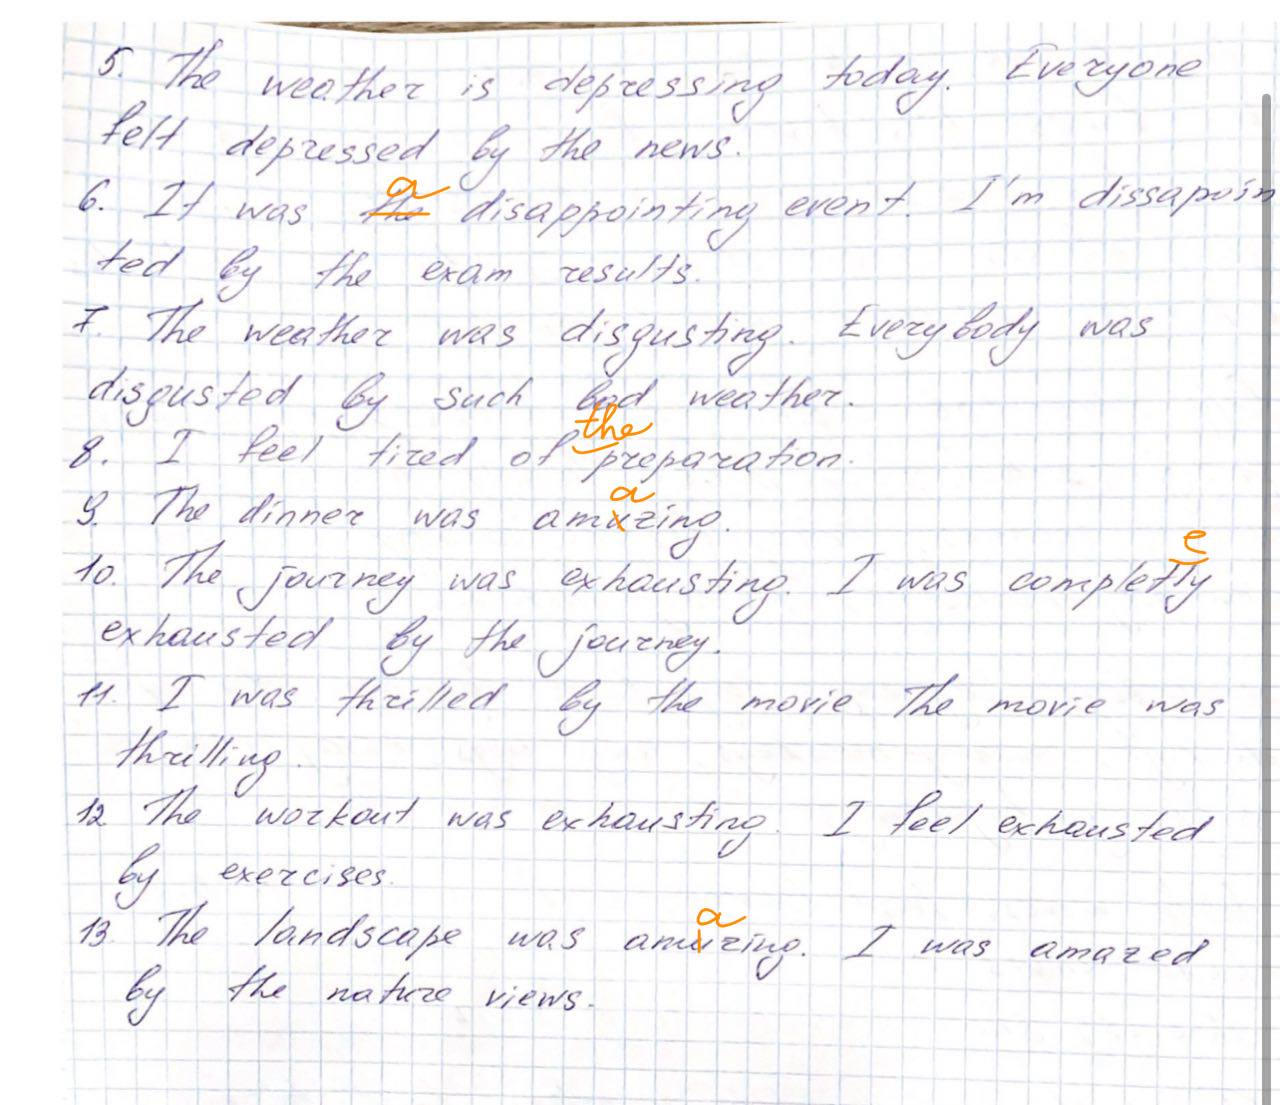 5. The weather is depressing today. Everyone
felt depressed by the news.
a
6. It was the disappointing event. I'm dissapoin
ted by the exam results.
7. The weather was disgusting. Everybody was
disgusted by such bad weather.
the
8. I feel tired of preparation.
a
9. The dinner was amuzing.
e
10. The journey was exhausting. I was completly
exhausted by the journey.
11. I was thrilled by the movie The movie was
thrilling.
12. The workout was exhausting. I feel exhausted
by exercises.
a
13. The landscape was amuzing. I was amazed
by the nature views.